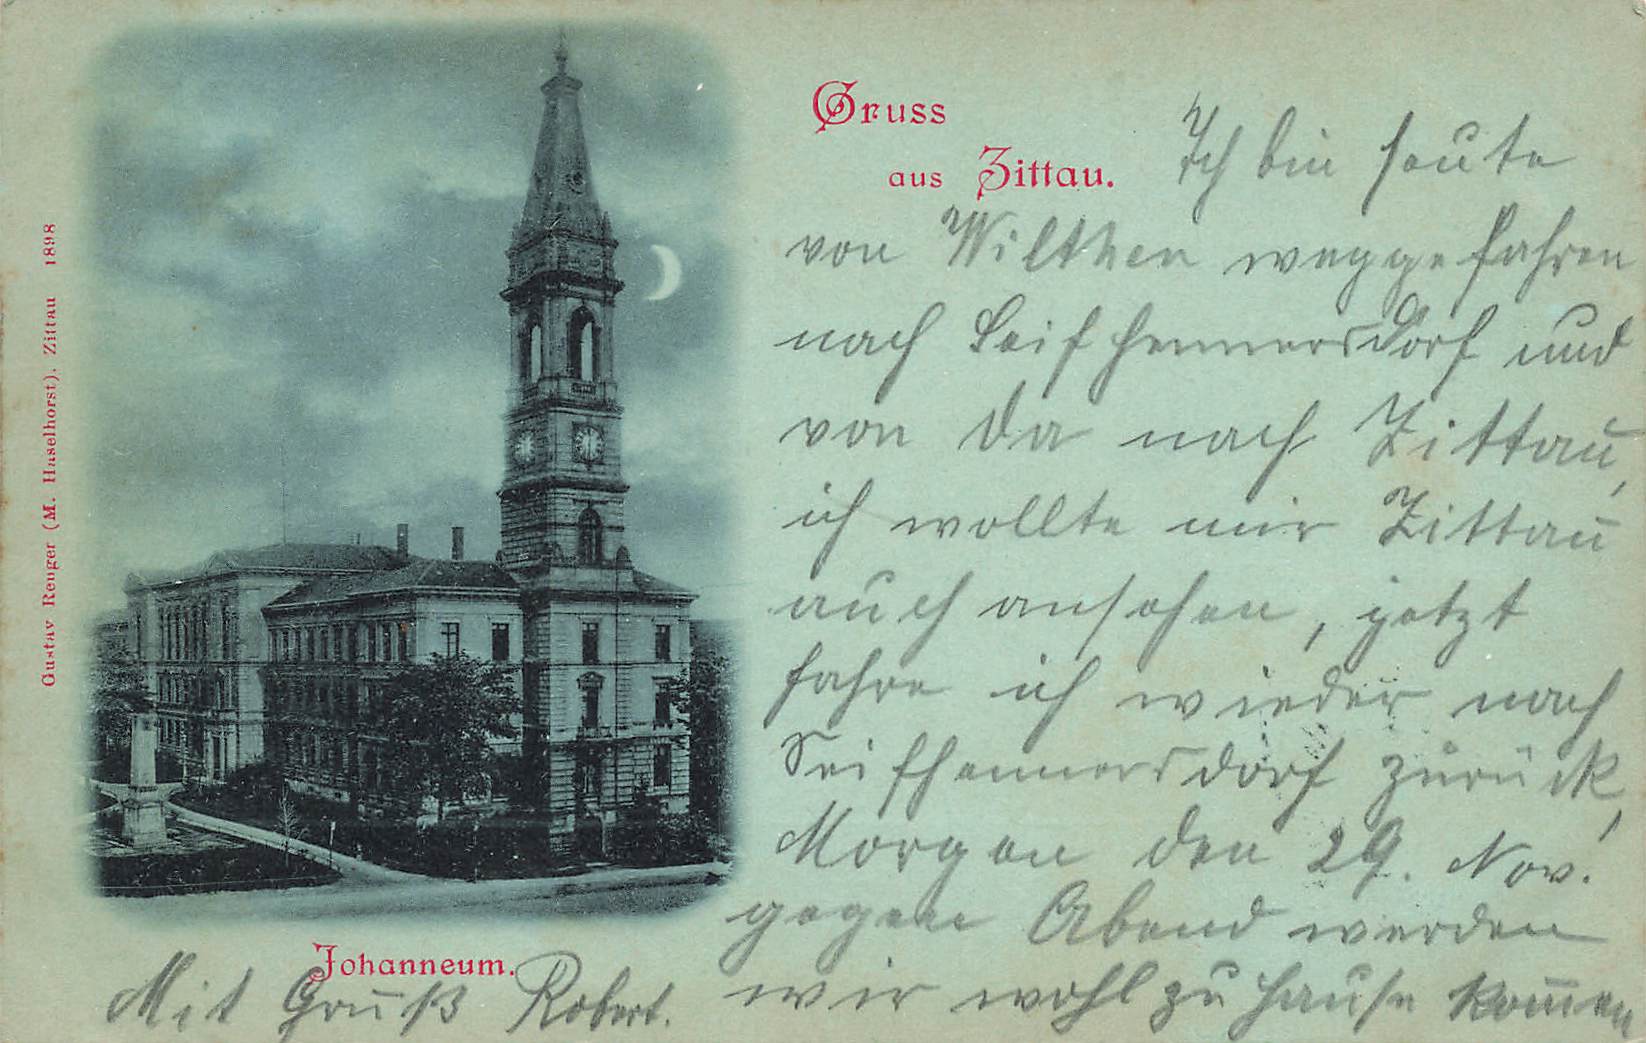 Gruss
aus Zittau.
Ich bin heute
von Wilthen weggefahren
nach Seifhennersdorf und
von da nach Zittau,
ich wollte mir Zittau
auch ansehen, jetzt
fahre ich wieder nach
Seifhennersdorf zurück,
Morgen den 29. Nov.
gegen Abend werden
wir wohl zu hause kom̅en
Mit Gruß Robert.
Johanneum.
Gustav Renger (M. Haselhorst). Zittau 1898